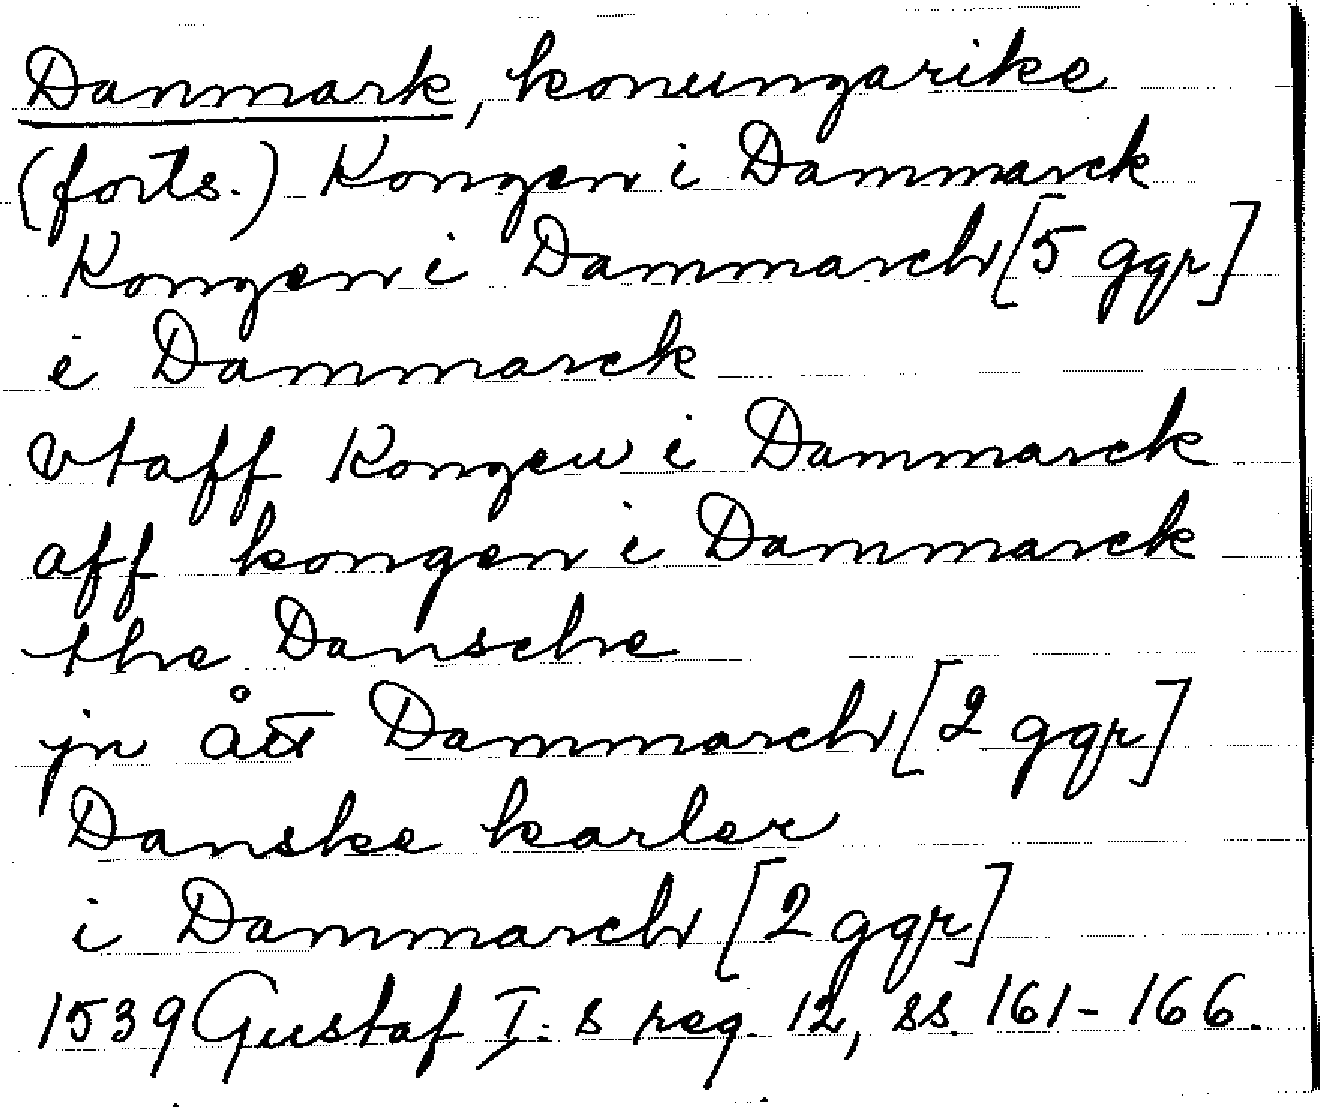 Danmark, konungarike
(forts.) Kongen i Dammarck
Kongen i Dammarch [5 ggr]
i Dammarck
vtaff Kongen i Dammarck
aff kongen i Dammarck
the Dansche
jn ått Dammarch [2 ggr]
Danske karler
i Dammarch [2 ggr]
1539 Gustaf I:s reg. 12, ss. 161-166.